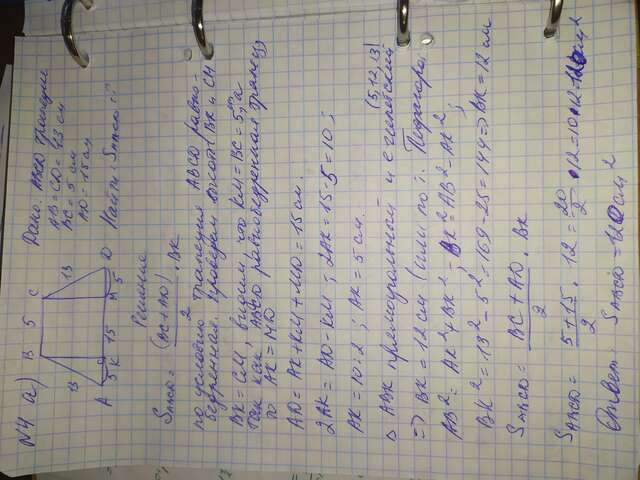 N4 a)
B 5 C
13 13
A 5 K 15 M 5 D
Дано: ABCD трапеция
AB = CD = 13 см
BC = 5 см
AD = 15 см
Найти: SABCD = ?
Решение
SABCD = (BC + AD) / 2 · BK
по условию трапеция ABCD равно-
бедренная. Проведем высоты BK и CM
BK = CM, видим что KM = BC = 5 см, а
так как ABCD равнобедренная трапеция
то AK = MD
AD = AK + KM + MD = 15 см.
2AK = AD - KM; 2AK = 15 - 5 = 10;
AK = 10 : 2; AK = 5 см.
△ ABK прямоугольный и египетский (5,12,13)
=> BK = 12 см (или по т. Пифагора.
AB² = AK² + BK² - BK² = AB² - AK²;
BK² = 13² - 5² = 169 - 25 = 144 => BK = 12 см
SABCD = BC + AD / 2 · BK
SABCD = 5 + 15 / 2 · 12 = 20 / 2 · 12 = 10 · 12 = 120 см²
Ответ: SABCD = 120 см²